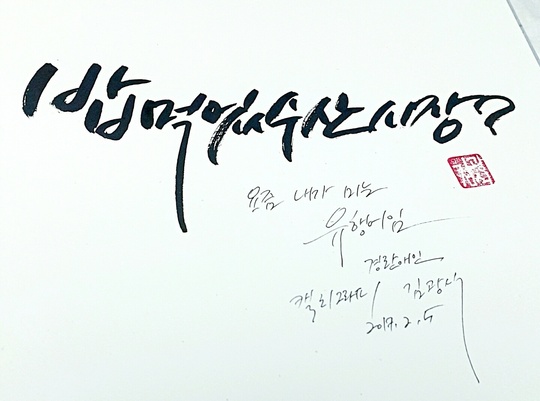 밥먹었수산시장?
요즘 내가 미는
유행어임
경란애인
캘리그라퍼 김광
2017. 2. 5